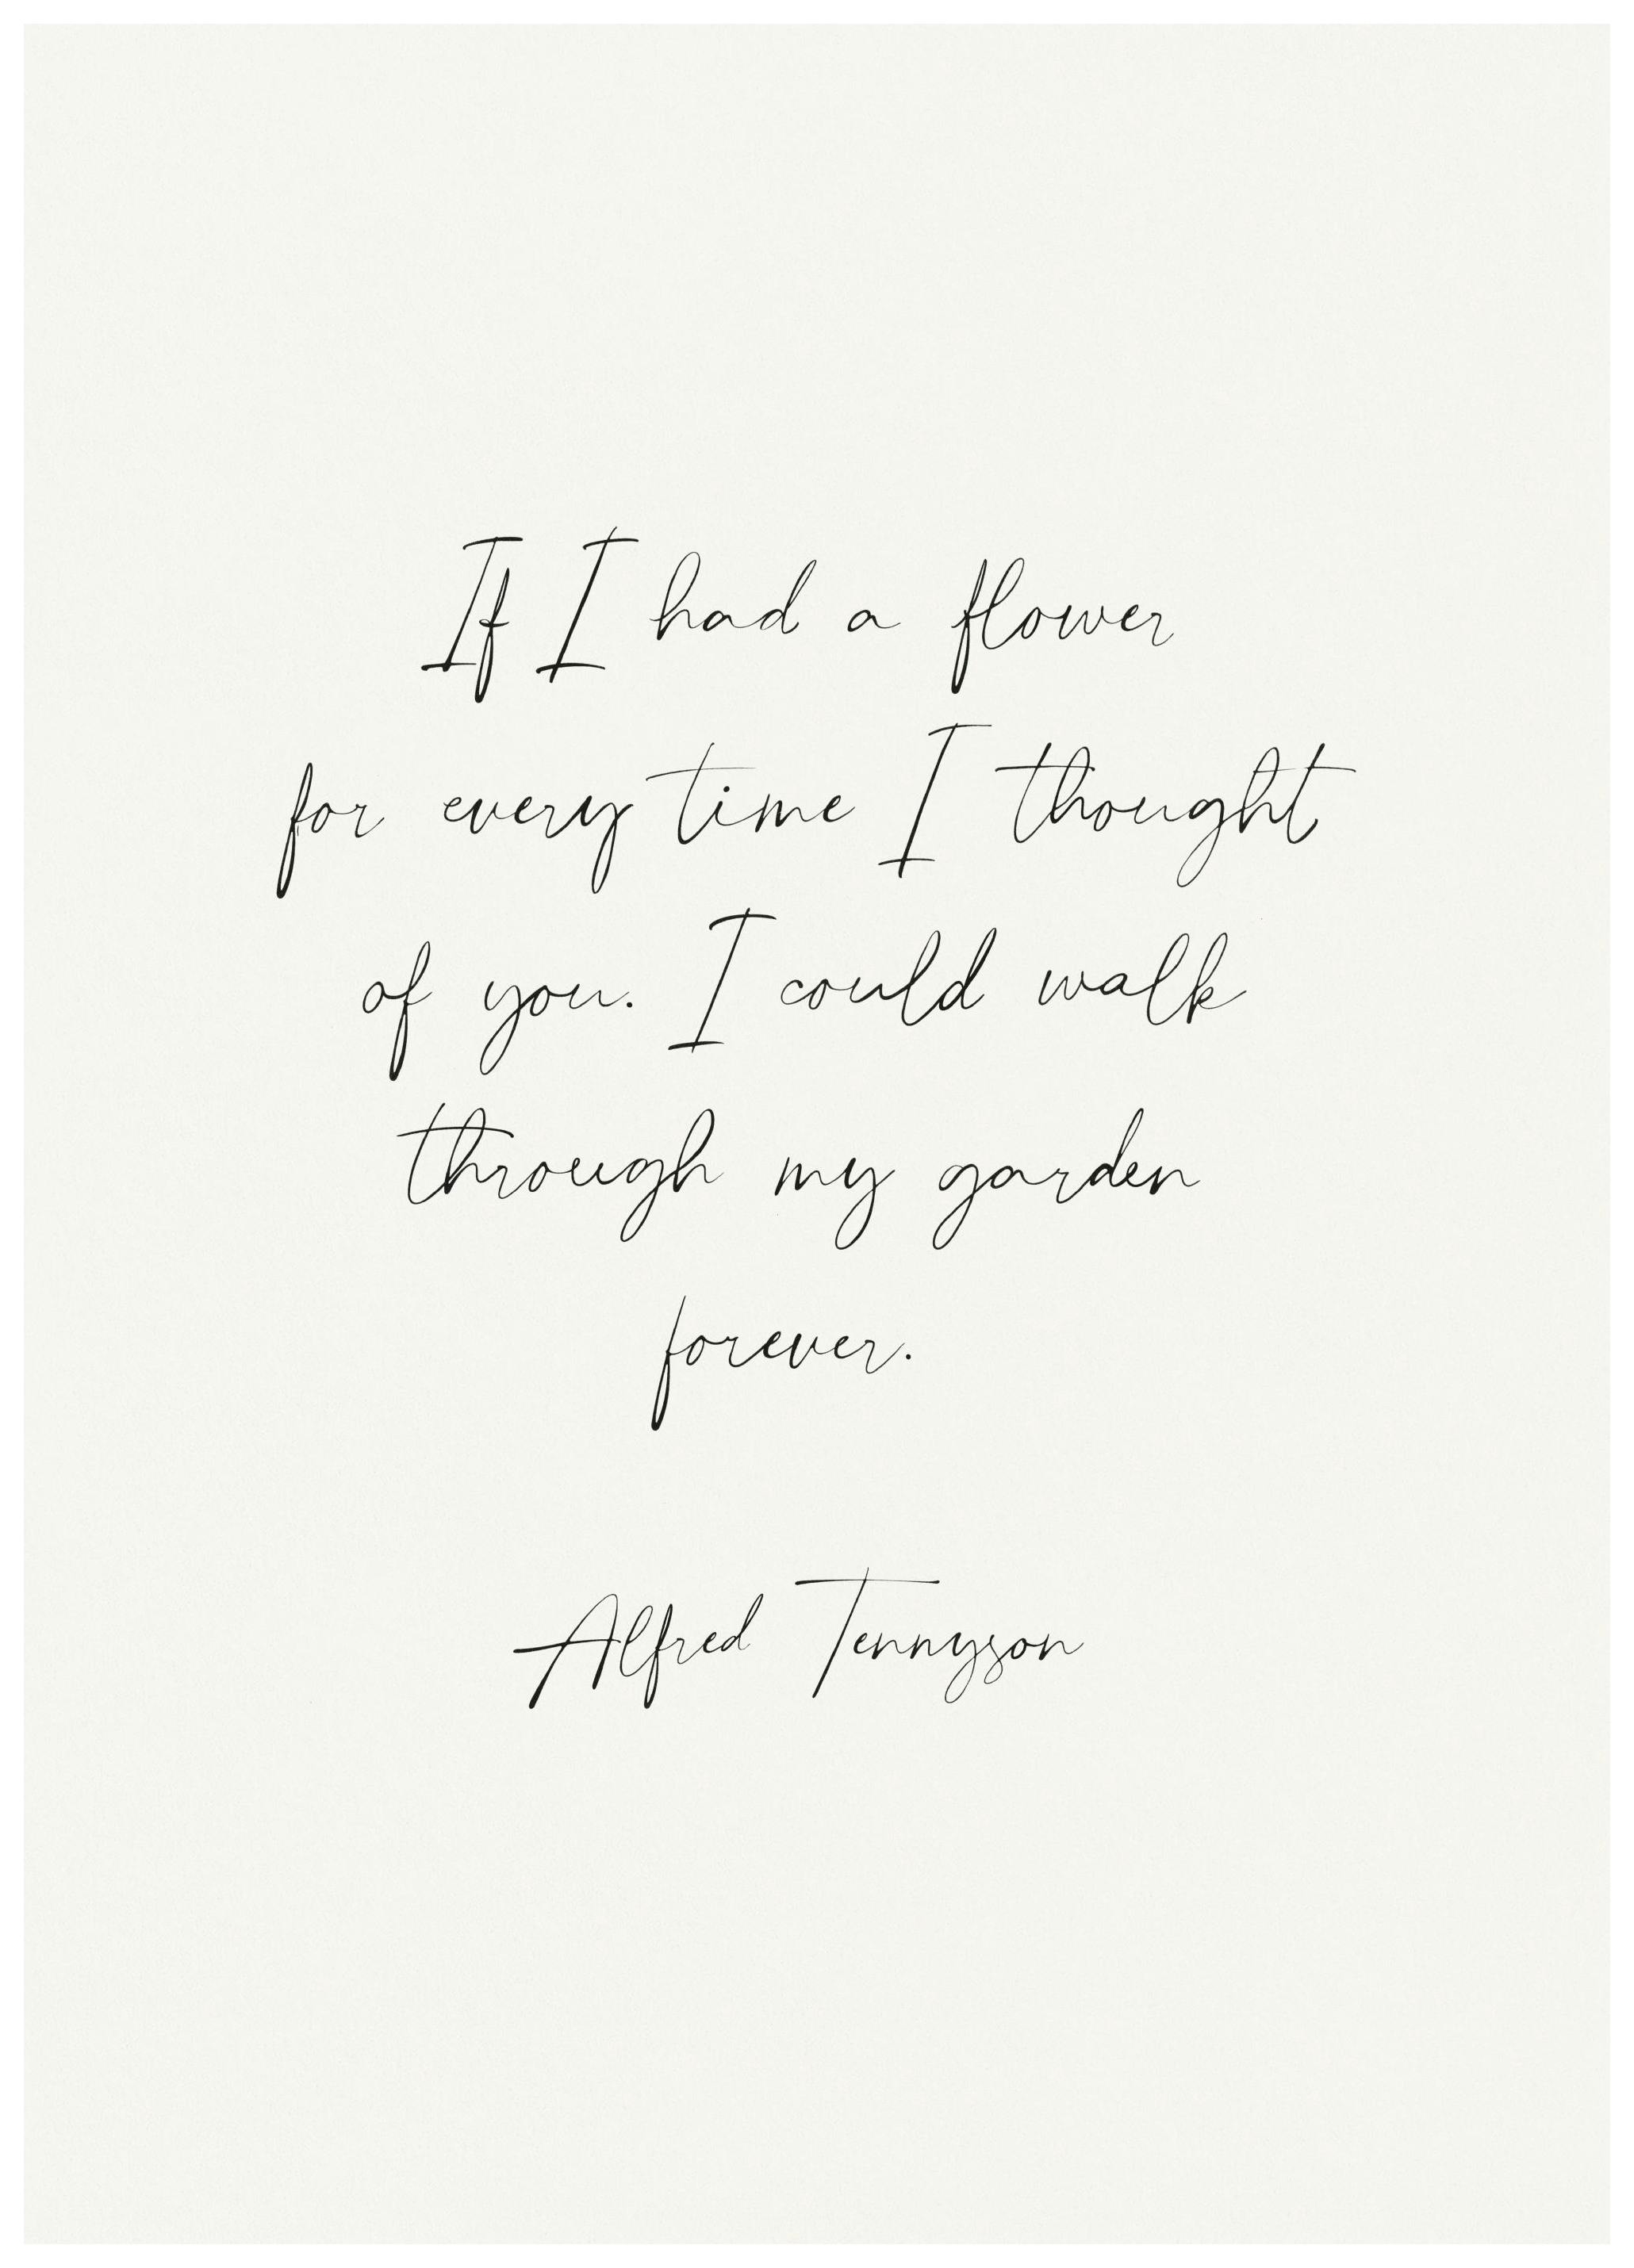 If I had a flower
for every time I thought
of you. I could walk
through my garden
forever.
Alfred Tennyson